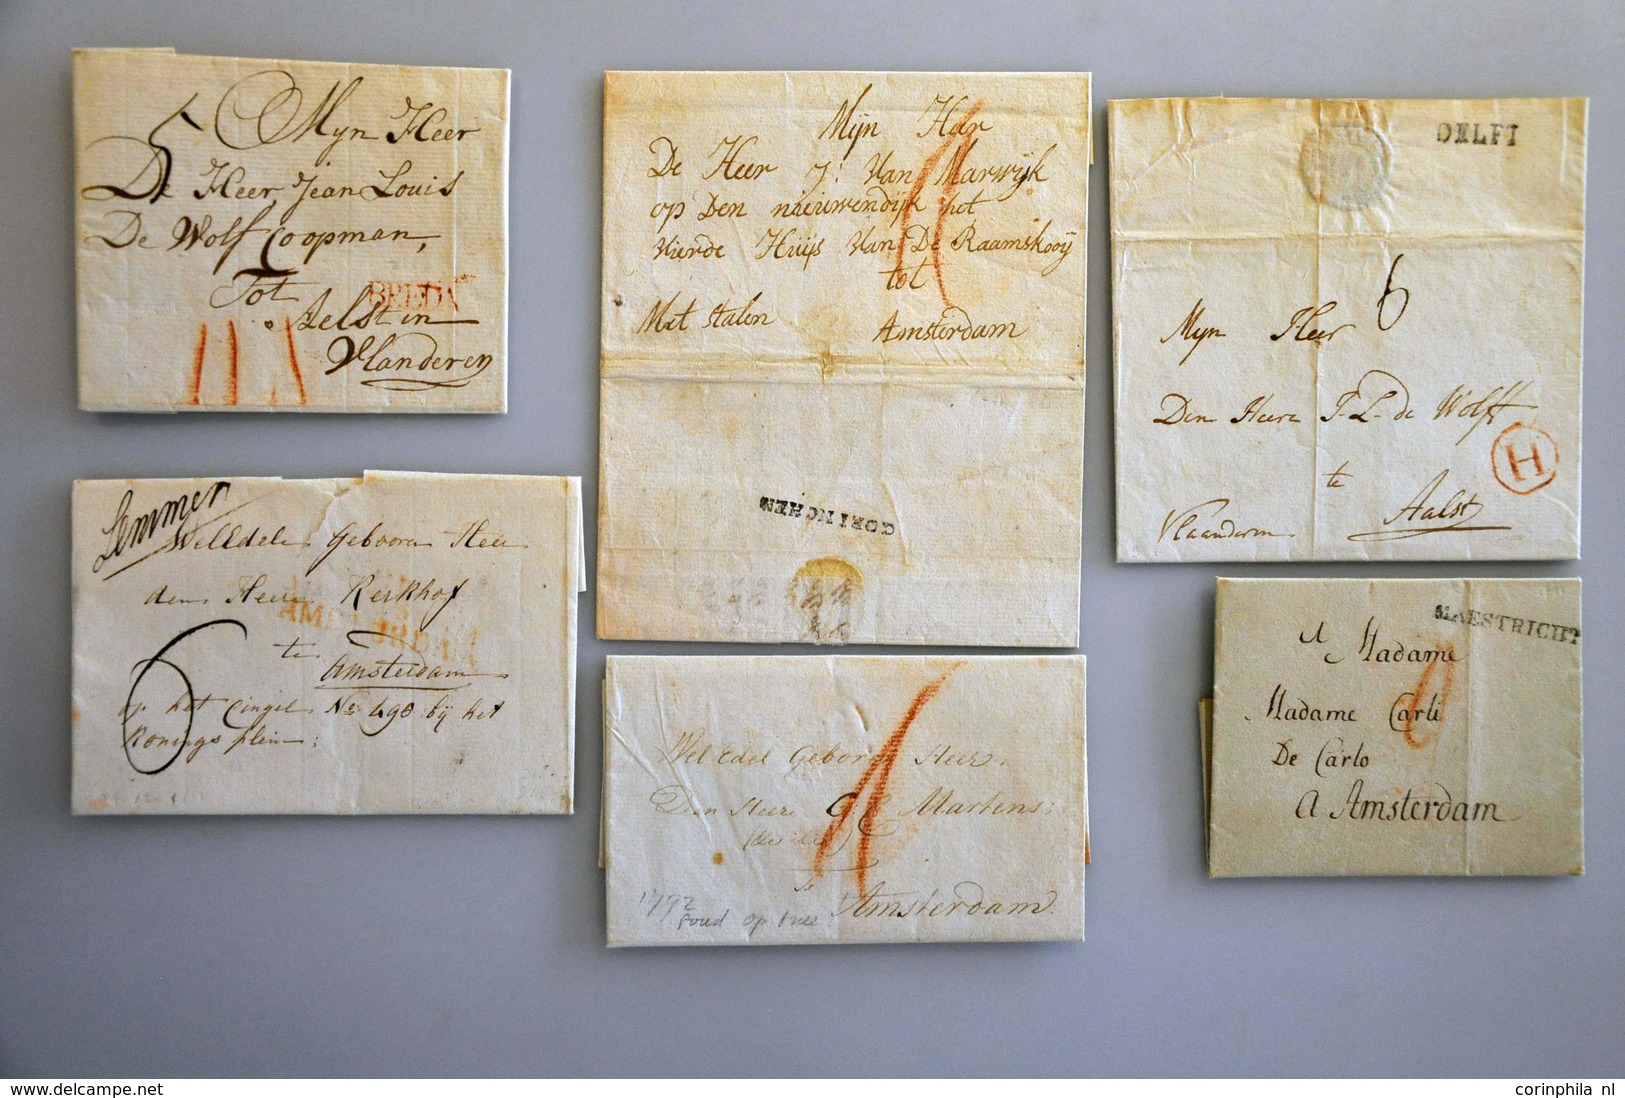 5 Myn Heer
De Heer Jean Louis
De Wolf Coopman,
Tot
BREDA
Aelst in
Vlanderen
Mÿn Heer
De Heer J: Van Marwÿk
op Den nieuwendÿk het
vierde Huÿs Van De Raamskooÿ
tot
Met stalen Amsterdam
GORINCHEM
DELFT
6
Myn Heer
Den Heere J-L- de Wolff
te
H
Vlaanderen Aalst
Lemmer
WelEdele Geboore Heer
den Heere Kerkhof
AMSTERDAM
te
Amsterdam
6
op het Cingel No 490 bÿ het
Konings plein:
Wel Edel Geboren Heer.
Den Heere Martens:
Te
1792
goud op snee
Amsterdam.
MAESTRICHT
A Madame
Madame Carli
De Carlo
a Amsterdam
www.delcampe.net
corinphila nl